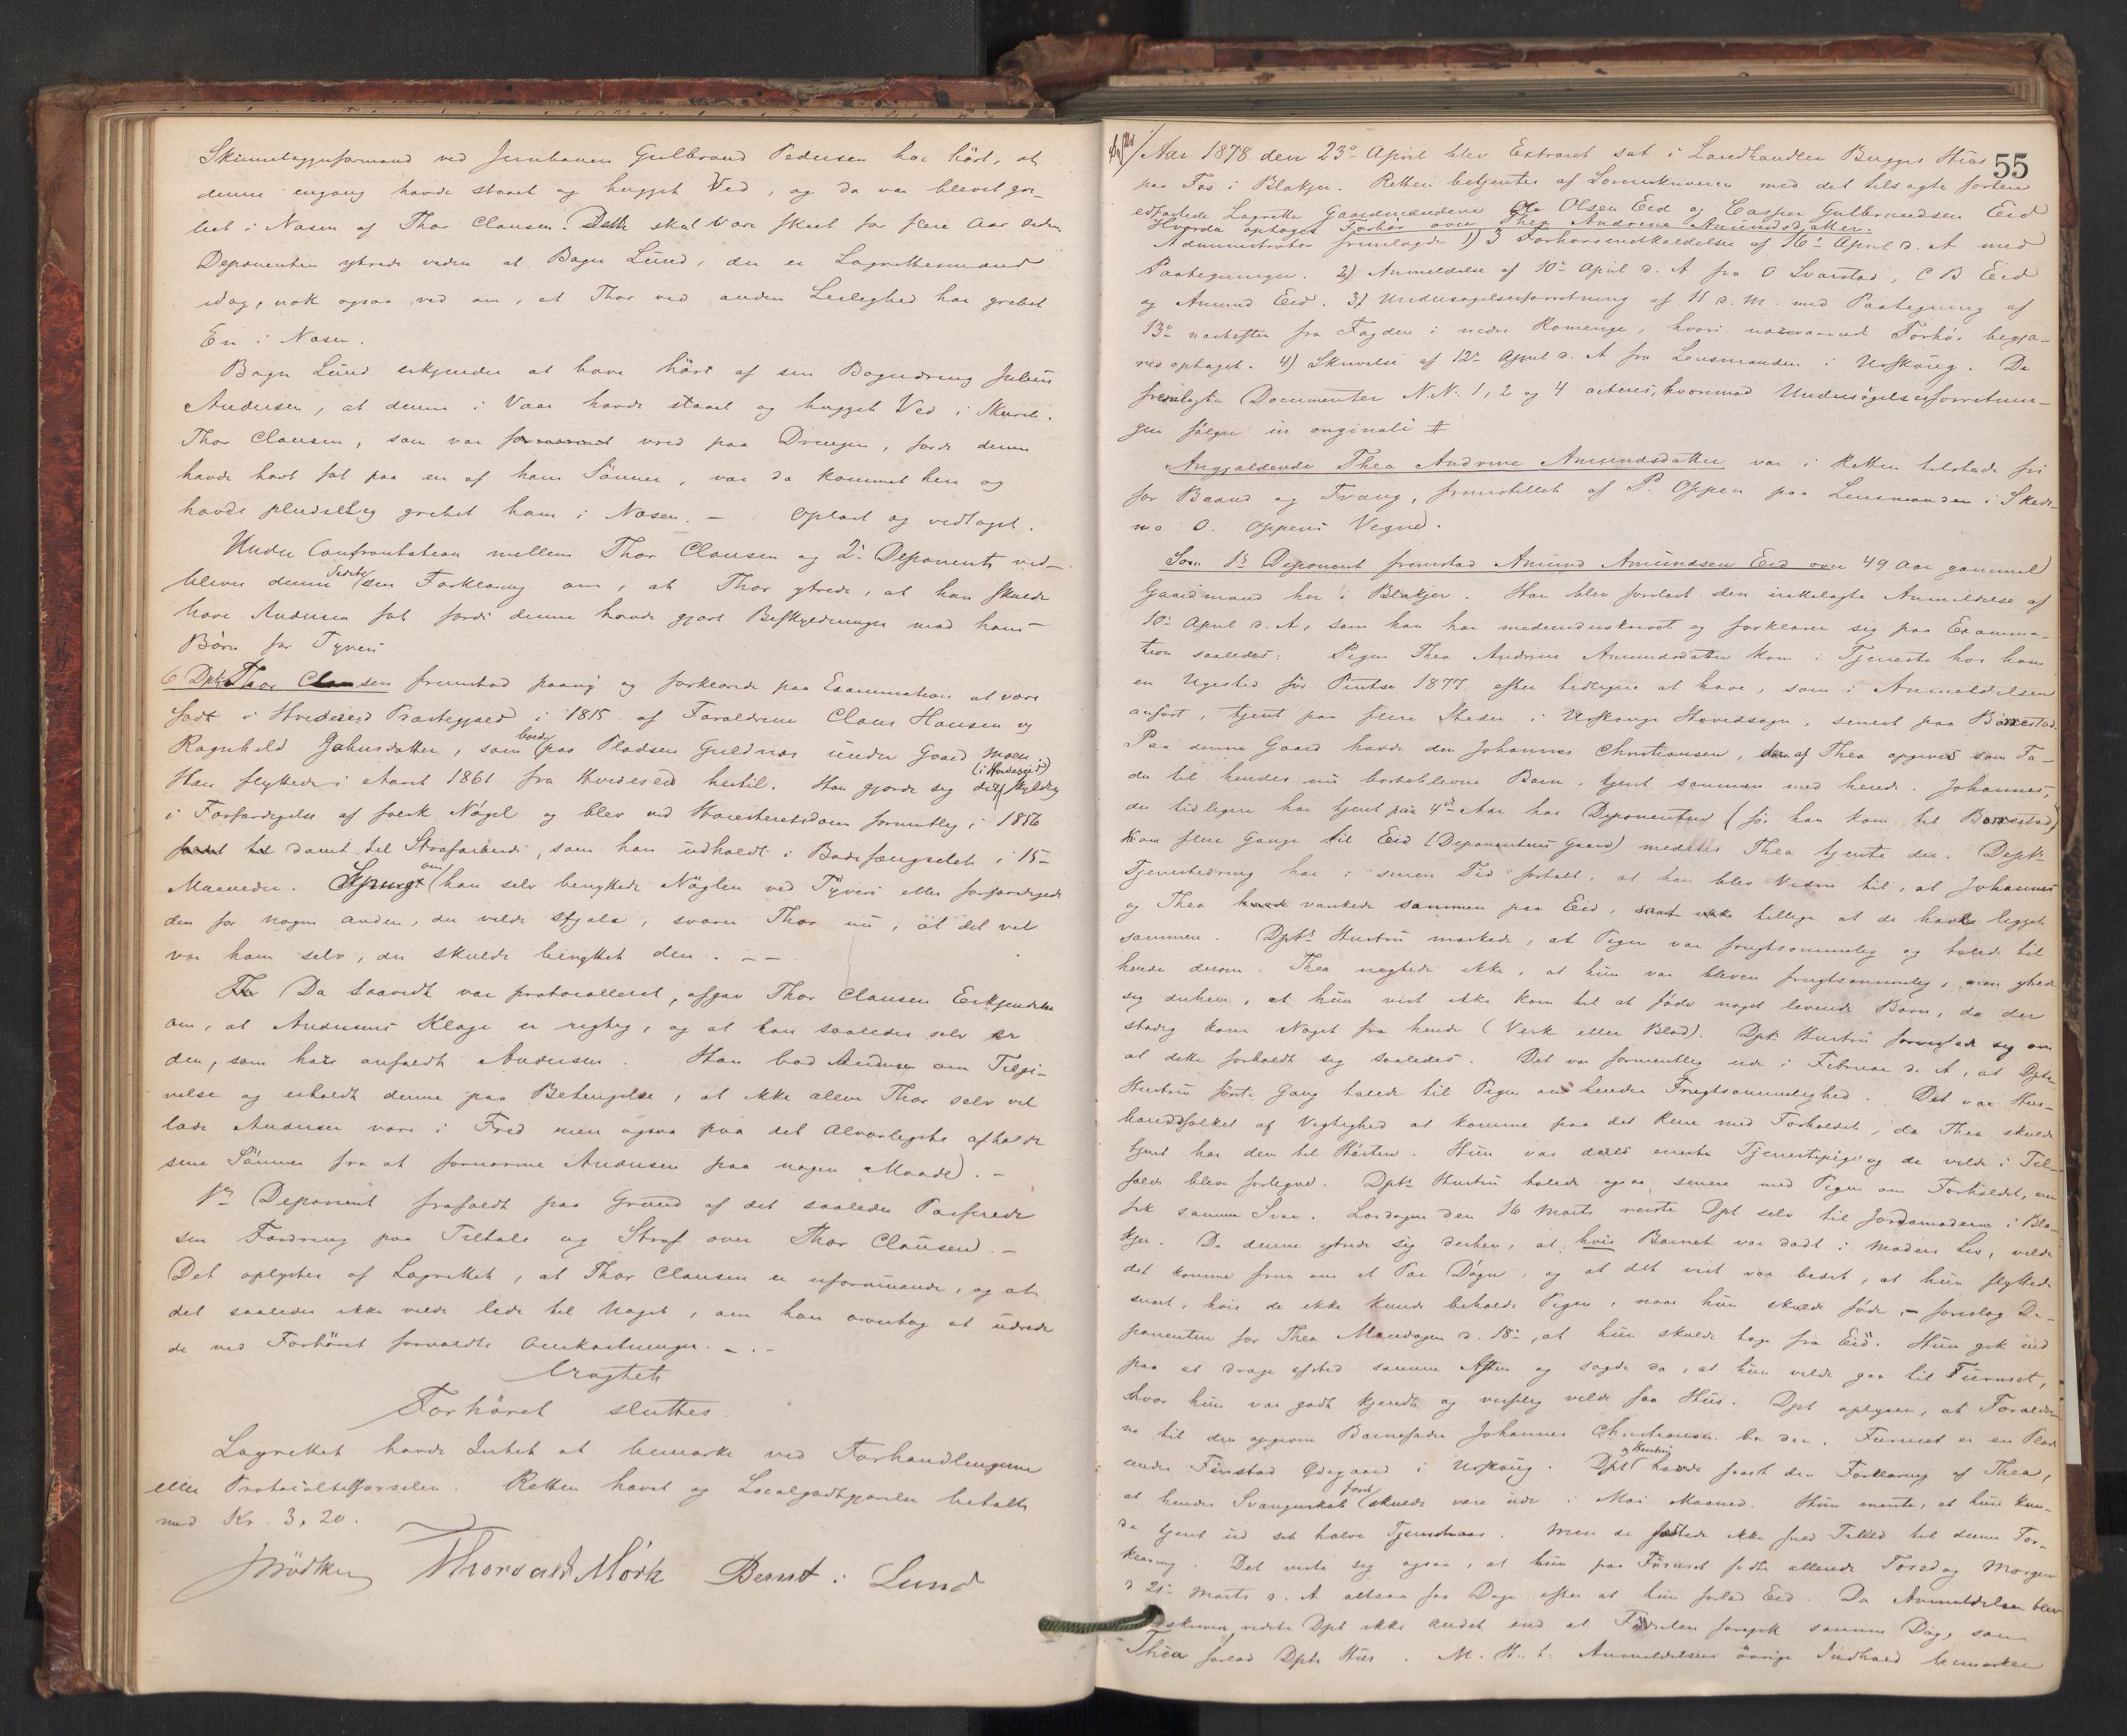 Skinnelæggerformand ved Jernbanen Gulbrand Pedersen har hört, at
denne engang havde staaet og hugget Ved, og da var blevet gre-
bet i Nasen af Thor Clausen. Dette skal være skeet for flere Aar siden
Deponenten ytrede videre at Bager Lund, der er Lagrettesmand
idag, nok ogsaa ved om, at Thor ved anden Leilighed har grebet
En i Nasen.
Bager Lund erkjender at have hört af sin Bagerdreng Julius
Andersen, at denne i Vaar havde staaet og hugget Ved i Skuret.
Thor Clausen, som var vred paa Drengen, fordi denne
havde havt fat paa en af hans Sönner, var da kommet hen og
havde pludselig grebet ham i Nasen. – Oplæst og vedtaget.
Under Confrontation mellem Thor Clausen og 2d Deponent ved-
bliver denne Sidste sin Forklaring om, at Thor ytrede, at han skulde
have Andersen fat fordi denne havde gjort Beskyldninger mod hans
Börn for Tyveri
6 Dpt Thor Clausen fremstod paany og forklarede paa Examination at være
födt i Hvideseid Præstegjeld i 1815 af Forældrene Claus Hansen og
Ragnhild Johnsdatter, som boede paa Pladsen Guldnæs under Gaard Moen
Han flyttede i Aaret 1861 fra Hvideseid hertil. Han gjorde sig der (i Hvideseid) skyldig
i Forfærdigelse af falsk Nögel og blev ved Höiesteretsdom formentlig i 1856
dömt til Strafarbeide, som han udholdt i Bodsfængselet i 15
Maaneder. Spurgt om han selv benyttede Nöglen ved Tyveri eller forfærdigede
den for nogen anden, der vilde stjæle, svarer Thor nu, at det vel
var ham selv, der skulde benyttet den. – –
Da saavidt var protocolleret, afgav Thor Clausen Erkjendelse
om, at Andersens Klage er rigtig, og at han saaledes selv er
den, som har anfaldt Andersen. Han bad Andersen om Tilgi-
velse og erholdt denne paa Betingelse, at ikke allene Thor selv vil
lade Andersen være i Fred men ogsaa paa det Alvorligste afholde
sine Sönner fra at fornærme Andersen paa nogen Maade. –
1ste Deponent frafaldt paa Grund af det saaledes Passerede
sin Fordring paa Tiltale og Straf over Thor Clausen. –
Det oplystes af Lagrettet, at Thor Clausen er uformuende, og at
det saaledes ikke vilde lede til Noget, om han overtog at udrede
de ved Forhöret forvoldte Omkostninger. – . –
Eragtet
Forhöret sluttes.
Lagrettet havde Intet at bemærke ved Forhandlingerne
eller Protocoltilförselen. Retten hævet og Localgodtgjörelse betalt
med Kr. 3,20.
Thorvald Mörk Bernt . Lund
55
Aar 1878 den 23de April blev Extraret sat i Landhandler Bugges Huus
paa Fos i Blakjer. Retten betjentes af Sorenskriveren med det tilsagte forhen
edfæstede Lagrette Gaardmændene Ole Olsen Eid og Casper Gulbrandsen Eid
Hvorda optoges Forhör over Thea Andrine Amundsdatter.
Administrator fremlagde 1) 3 Forhörsindkaldelse af 16de April d. A. med
Paategninger. 2) Anmeldelse af 10de April d. A. fra O Svarstad, C B Eid
og Amund Eid. 3) Undersögelsesforretning af 11 d. M. med Paategning af
13de næstefter fra Fogden i nedre Romerige, hvori nærværende Forhör begjæ-
res optaget. 4) Skrivelse af 12te April d. A. fra Lensmanden i Urskoug. De
fremlagte Documenter N.N. 1, 2 og 4 acteres, hvorimod Undersögelsesforretnin-
gen fölger in originali #
Angjældende Thea Andrine Amundsdatter var i Retten tilstede fri
for Baand og Tvang, fremstillet af P. Oppen paa Lensmanden i Skeds-
mo O. Oppens Vegne.
Som 1ste Deponent fremstod Amund Amundsen Eid over 49 Aar gammel
Gaardmand her i Blakjer. Han blev forelæst den irettelagte Anmeldelse af
10de April d. A., som han har medunderskrevet og forklarer sig paa Examina-
tion saaledes: Pigen Thea Andrine Amundsdatter kom i Tjeneste hos ham
en Ugestid för Pintse 1877 efter tidligere at have, som i Anmeldelsen
anfört, tjent paa flere Steder i Urskougs Hovedsogn, senest paa Börrestad.
Paa denne Gaard havde den Johannes Christiansen, som af Thea opgives som Fa-
der til hendes nu bortblevne Barn, tjent sammen med hende. Johannes,
der tidligere har tjent paa 4de Aar hos Deponenten (för han kom til Börrestad)
kom flere Gange til Eid (Deponentens Gaard) medens Thea tjente der. Deptn
Tjenestedreng har i senere Tid fortalt, at han blev Vidne til, at Johannes
og Thea vankede sammen paa Eid, tillige at de havde ligget
sammen. Dpts Hustru mærkede, at Pigen var frugtsommelig og talede til
hende derom. Thea nægtede ikke, at hun var bleven frugtsommelig, men ytrede
sig derhen, at hun vist ikke kom til at föde noget levende Barn, da der
stadig kom Noget fra hende (Verk eller Blod). Dpts Hustru forvissede sig om
at dette forholdt sig saaledes. Det var formentlig ude i Februar d. A., at Dpts
Hustru förste Gang talede til Pigen om hendes Frugtsommelighed. Det var Hus-
bondsfolket af Vigtighed at komme paa det Rene med Forholdet, da Thea skulde
tjent hos dem til Hösten. Hun var deres eneste Tjenestepige og de vilde i Til-
fælde blevet forlegne. Dpts Hustru talede ogsaa senere med Pigen om Forholdet, men
fik samme Svar. Lördagen den 16 Marts reiste Dpt selv til Jordemoderen i Bla-
kjer. Da denne ytrede sig derhen, at hvis Barnet var dödt i Moders Liv, vilde
det komme frem om et Par Dögn, og at det vist var bedst, at hun flyttede
snart, hvis de ikke kunde beholde Pigen, naar hun skulde föde, – foreslog De-
ponenten for Thea Mandagen d. 18de, at hun skulde tage fra Eid. Hun gik ind
paa at drage afsted samme Aften og sagde da, at hun vilde gaa til Furuset,
hvor hun var godt kjendt og visselig vilde faa Huus. Dpt oplyser, at Forældre-
ne til den opgivne Barnefader Johannes Christiansen bo der. Furuset er en Plads
under Finstad Ödegaard i Urskoug. Dpt og Hustru havde faaet den Forklaring af Thea,
at hendes Svangerskab först skulde være ude i Mai Maaned. Hun mente, at hun kun-
de tjent ud sit halve Tjenesteaar. Men de fæstede ikke fuld Tillid til denne For-
klaring. Det viste sig ogsaa, at hun paa Furuset födte allerede Torsdag Morgen
d 21de Marts d. A altsaa faa Dage efter at hun forlod Eid. Da Anmeldelsen blev
skreven vidste Dpt ikke andet end at Födselen foregik samme Dag, som
Thea forlod Dpts Huus. M. H. t. Anmeldelsens övrige Indhold bemærker